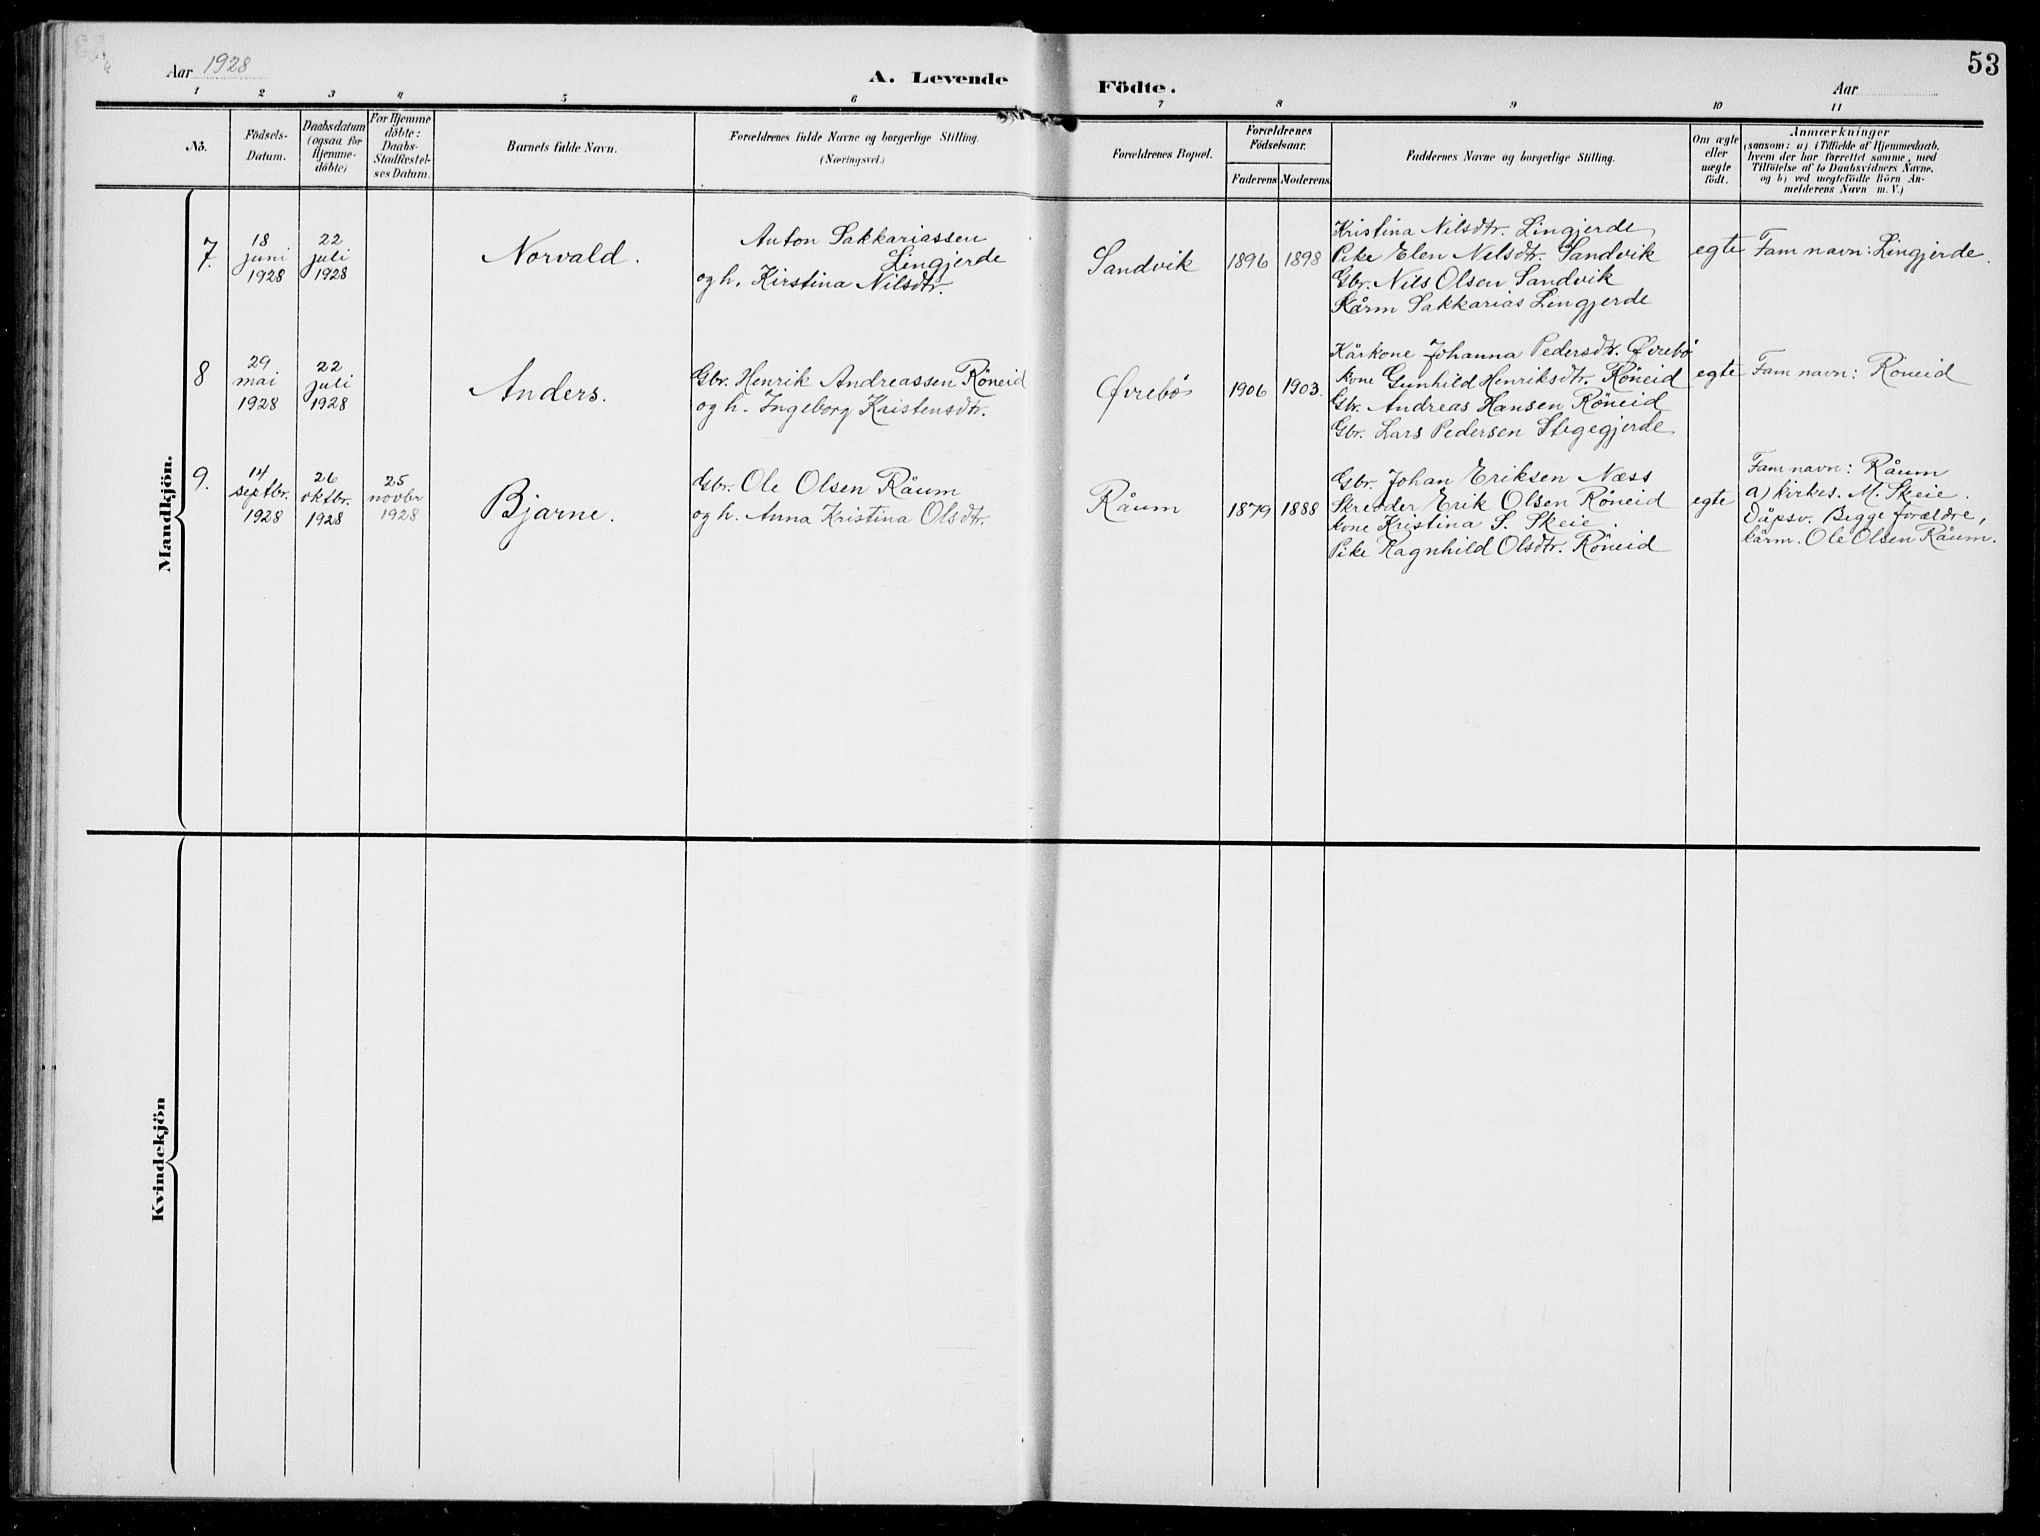 53
Aar 1928
A. Levende Födte.
Aar
1 2 3 4 5 6 7 8 9 10 11
No.
Födsels-
Datum.
Daabsdatum
(ogsaa for
Hjemme-
döbte)
For Hjemme
döbte:
Daabs-
Stadfæstel-
ses Datum.
Barnets fulde Navn.
Forældrenes fulde Navne og borgerlige Stilling.
(Næringsvei.)
Forældrenes Bopæl.
Forældrenes
Födselsaar.
Faderens
Moderens
Faddernes Navne og borgerlige Stilling.
Om ægte
eller
uægte
födt.
Anmærkninger
(saasom: a) i Tilfælde af Hjemmedaab,
hvem der har forrettet samme, med
Tilföielse af to Daabsvidners Navne,
og b) ved uægtefödte Börn An-
melderens Navn m. V.)
Mandkjön.
7.
18
juni
1928
22
juli
1928
Norvald.
Anton Sakkariassen
Lingjerde
og h. Kirstina Nilsdtr.
Sandvik
1896
1898
Kristina Nilsdtr. Lingjerde
Pike Elen Nilsdtr. Sandvik
Gbr. Nils Olsen Sandvik
Kårm Sakkarias Lingjerde
egte
Fam navn: Lingjerde.
8
29
mai
1928
22
juli
1928
Anders.
Gbr. Henrik Andreassen Röneid
og h. Ingeborg Kristensdtr.
Øvrebö
1906
1903.
Kårkone Johanna Pedersdtr. Øvrebö
kone Gunhild Henriksdtr. Röneid
Gbr. Andreas Hansen Röneid
Gbr. Lars Pedersen Stegegjerde
egte
Fam navn: Röneid
9.
14
septbr.
1928
26
oktbr.
1928
25
novbr
1928
Bjarne.
Gbr. Ole Olsen Råum
og h. Anna Kristina Olsdtr.
Råum
1879
1888
Gbr. Johan Eriksen Næss
Skredder Erik Olsen Röneid
kone Kristina S. Skeie.
Pike Ragnhild Olsdtr. Röneid
egte
Fam navn: Råum
a) kirkes. M. Skeie.
Dåpsv. Begge forældre,
kårm. Ole Olsen Råum.
Kvindekjön